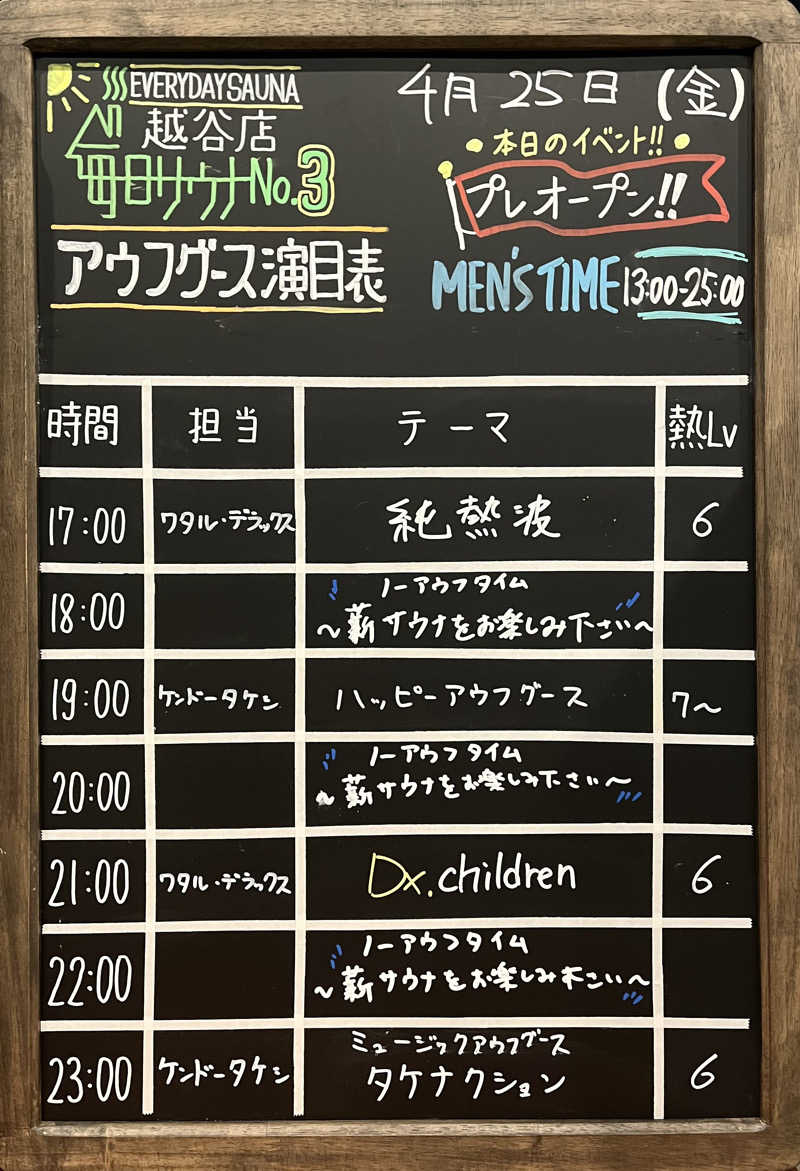 EVERYDAYSAUNA
越谷店
毎日サウナNo.3
アウフグース演目表
4月25日(金)
・本日のイベント!!・
プレオープン!!
MEN'S TIME 13:00-25:00
時間 担当 テーマ 熱Lv
17:00 ワタル・デラックス 純熱波 6
ノーアウフタイム
18:00 〜薪サウナをお楽しみ下さい〜
19:00 ケンドータケシ ハッピーアウフグース 7〜
ノーアウフタイム
20:00 〜薪サウナをお楽しみ下さい〜
21:00 ワタル・デラックス Dx.children 6
ノーアウフタイム
22:00 〜薪サウナをお楽しみ下さい〜
ミュージックアウフグース
23:00 ケンドータケシ タケナクション 6